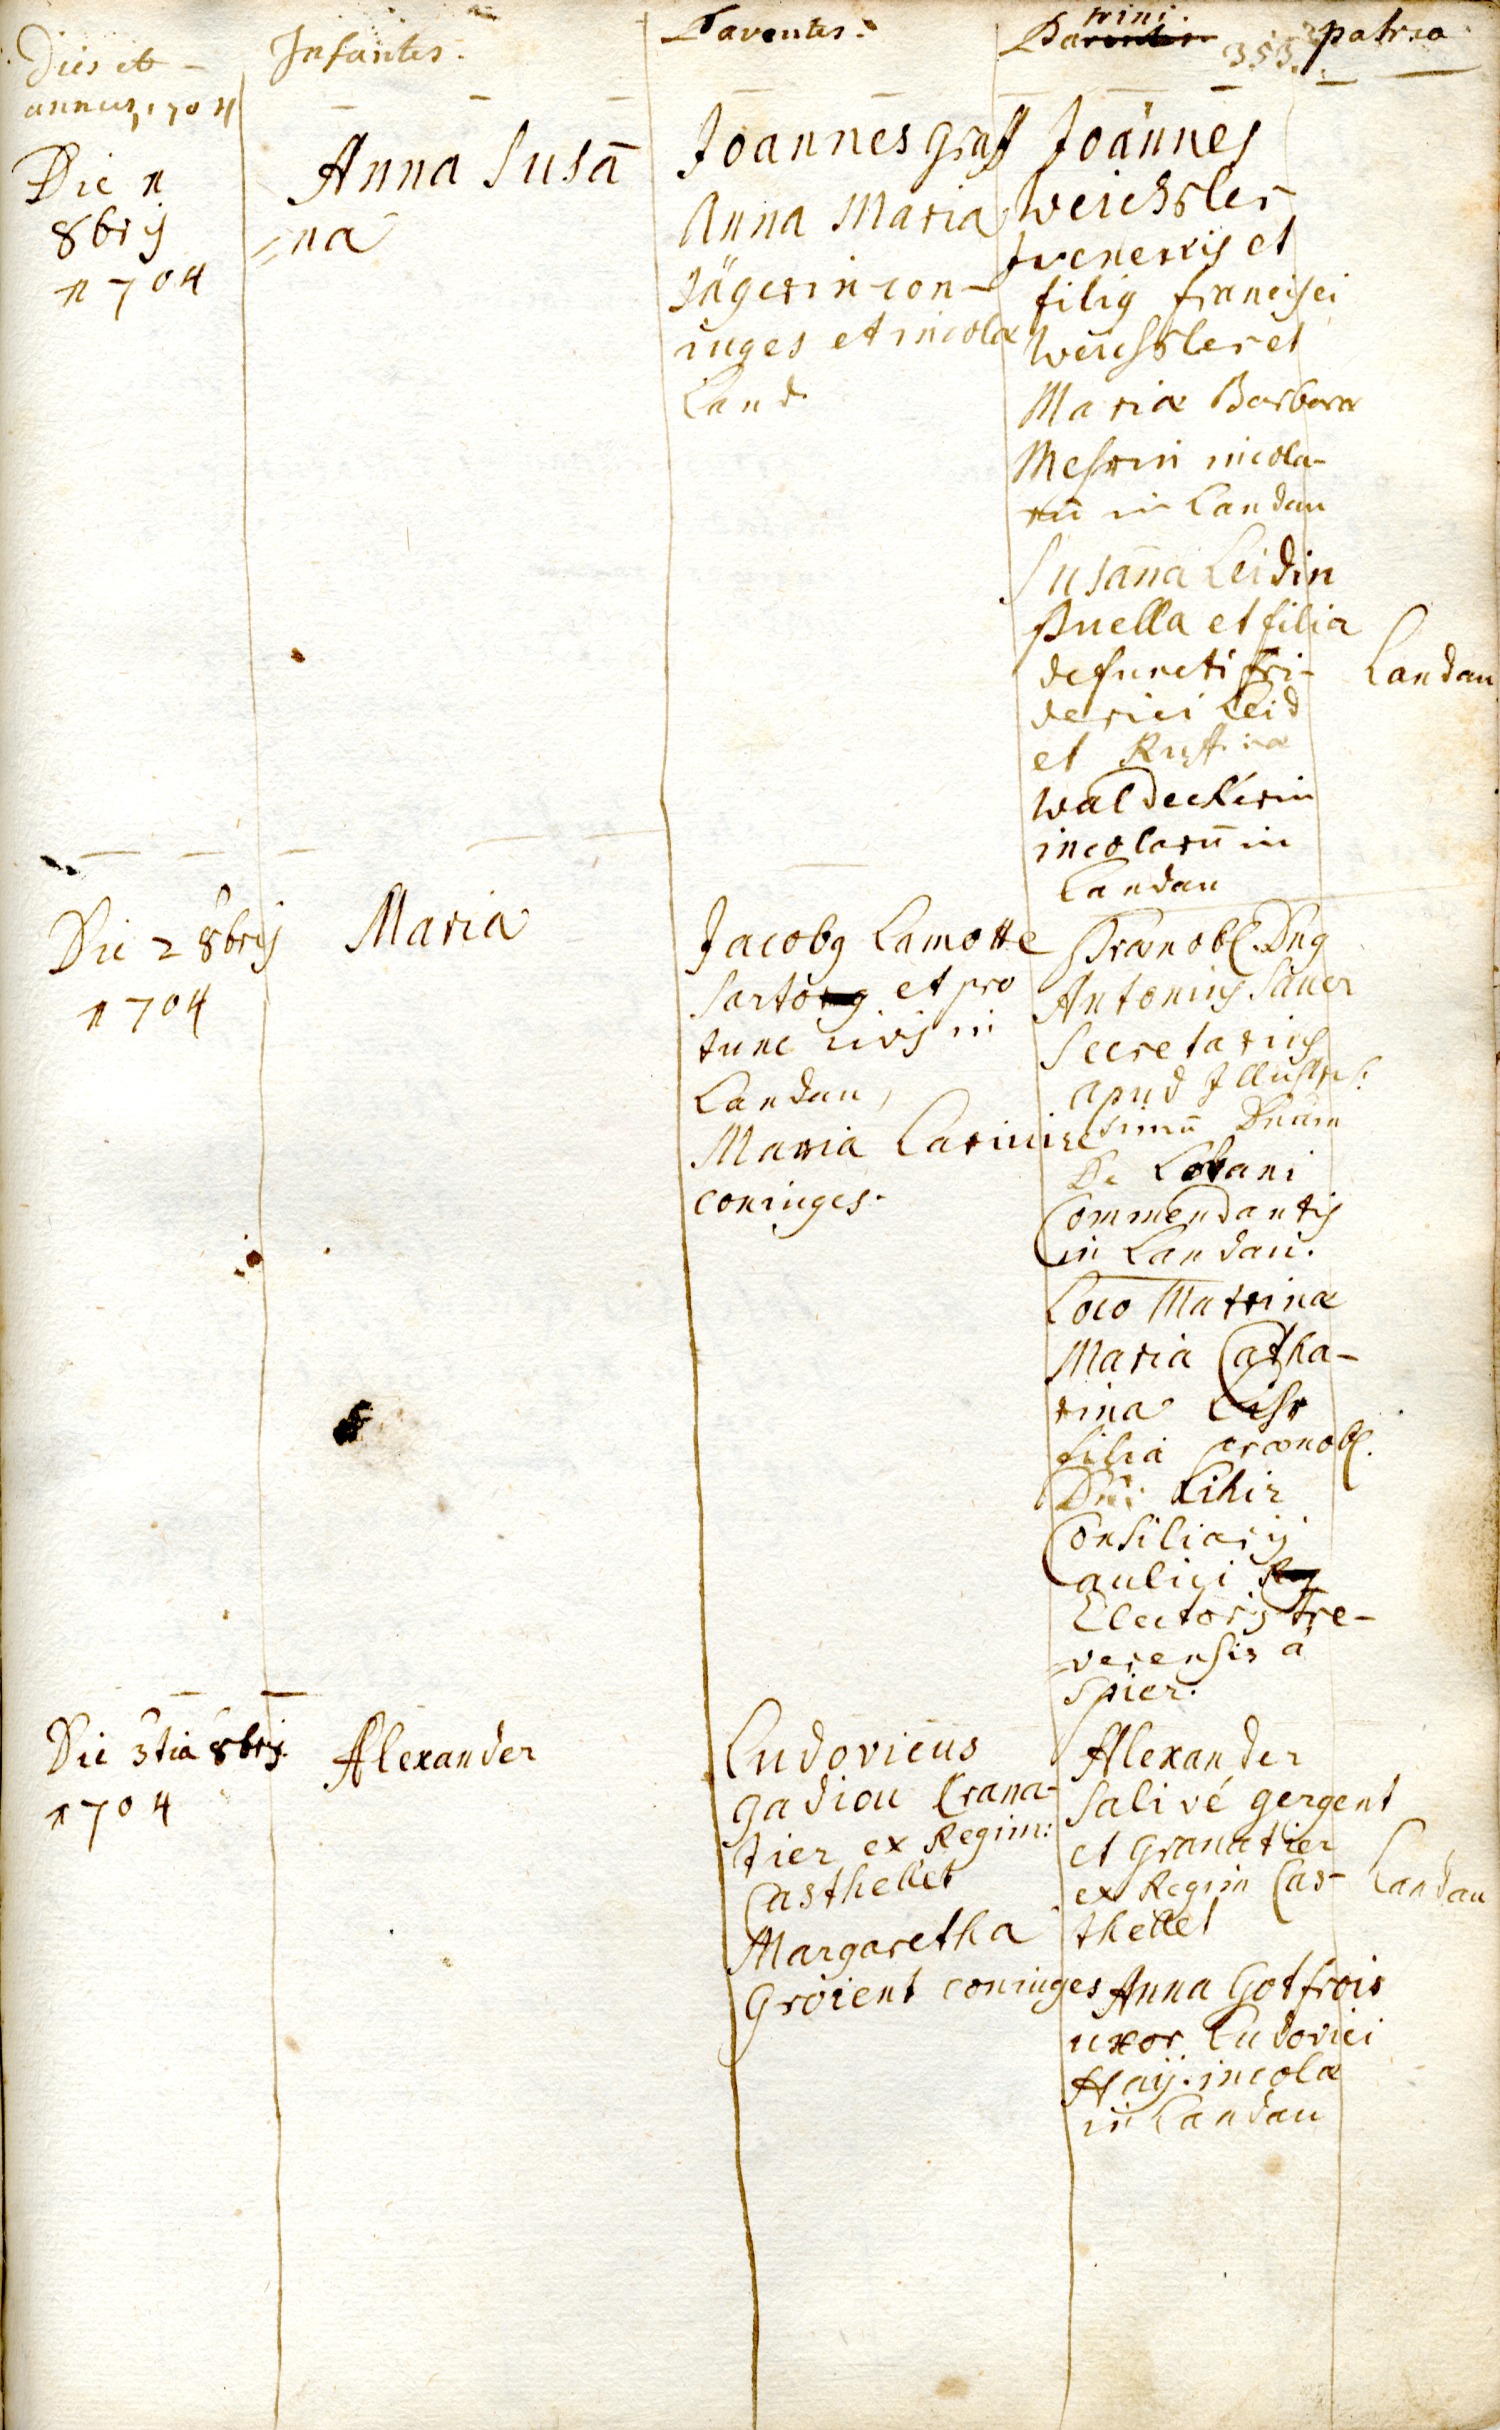 Dies et
annus 1704
Infantes.
Parentes.
Patrini.
353.
patria
Die 1
8bris
1704
Anna Susā
=na
Joannes Graff
Anna Maria
Jägerin con-
iuges et incolæ
Land.
Joannes
Weichsler
Juvenis et
filius francisci
Weichsler et
Mariæ Barbaræ
Mesrin incola-
rū in Landau
Susāna Leidin
Puella et filia
defuncti fri-
derici Leid
et Ruffinæ
Waldeckerin
incolarū in
Landau
Landau
Die 2 8bris
1704
Maria
Jacobus Lamotte
Sartor et pro
tunc civis in
Landau,
Maria Lariuire
coniuges.
Prænobl. Dnus
Antonius Sauer
Secretarius
apud Illustris:
simū Dnum
De Lobani
Commendantis
in Landau.
Loco Matrinæ
Maria Catha-
rina Lihr
filia prænobl.
Dni: Lihir
Consiliarij
aulici
Electoris Tre-
=verensis à
Spier.
Die 3tia 8bris.
1704
Alexander
Ludovicus
Gadiou Grana-
tier ex Regim:
Casthellet
Margaretha
Groient coniuges
Alexander
Salivé gergent
et Granatier
ex Regim Cas-
thellet
Landau
Anna Gotfrois
uxor Ludovici
Haij. incolæ
in Landau